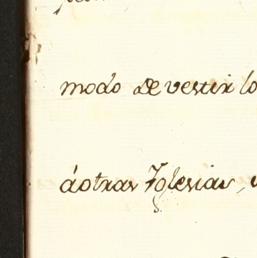 modo de vestir lo
áotras Yglesias,